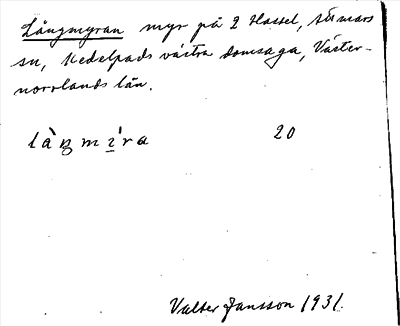 Långmyran myr på 2 Hassel, Attmars
sn, Medelpads västra domsaga, Väster-
norrlands län.
20
Valter Jansson 1931.